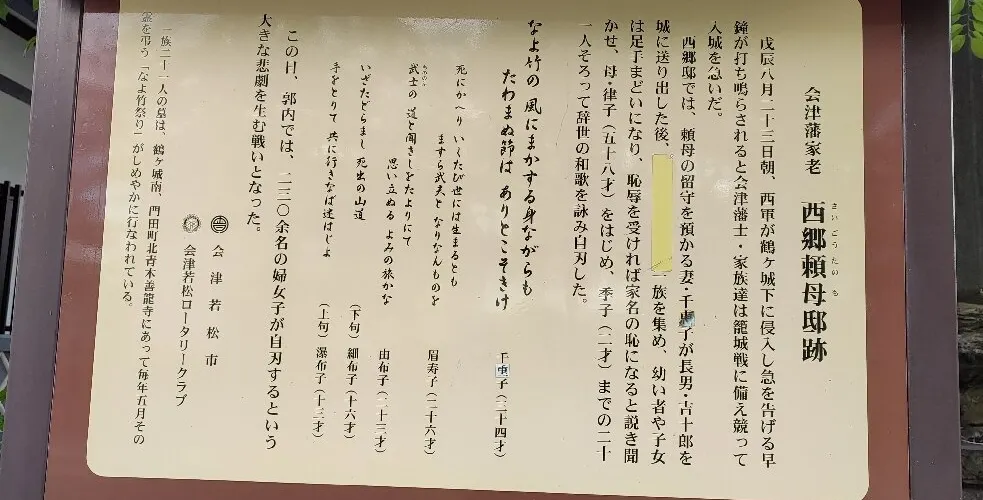 会津藩家老 西郷頼母邸跡
さいごうたのも
戊辰八月二十三日朝、西軍が鶴ヶ城下に侵入し急を告げる早
鐘が打ち鳴らされると会津藩士・家族達は籠城戦に備え競って
入城を急いだ。
西郷邸では、頼母の留守を預かる妻・千重子が長男・吉十郎を
城に送り出した後、一族を集め、幼い者や子女
は足手まどいになり、恥辱を受ければ家名の恥になると説き聞
かせ、母・律子(五十八才)をはじめ、季子(二才)までの二十
一人そろって辞世の和歌を詠み自刃した。
なよ竹の 風にまかする身ながらも
たわまぬ節は ありとこそきけ 千重子(三十四才)
死にかへり いくたび世には生まるとも
ますら武夫と なりなんものを 眉寿子(二十六才)
武士の 道と聞きしをたよりにて
もののふ
思い立ぬる よみの旅かな 由布子(二十三才)
いざたどらまし 死出の山道 (下句)細布子(十六才)
手をとりて 共に行きなば迷はじよ (上句)瀑布子(十三才)
この日、郭内では、二三〇余名の婦女子が自刃するという
大きな悲劇を生む戦いとなった。
会津若松市
会津若松ロータリークラブ
一族二十一人の墓は、鶴ヶ城南、門田町北青木善龍寺にあって毎年五月その
霊を弔う「なよ竹祭り」がしめやかに行なわれている。